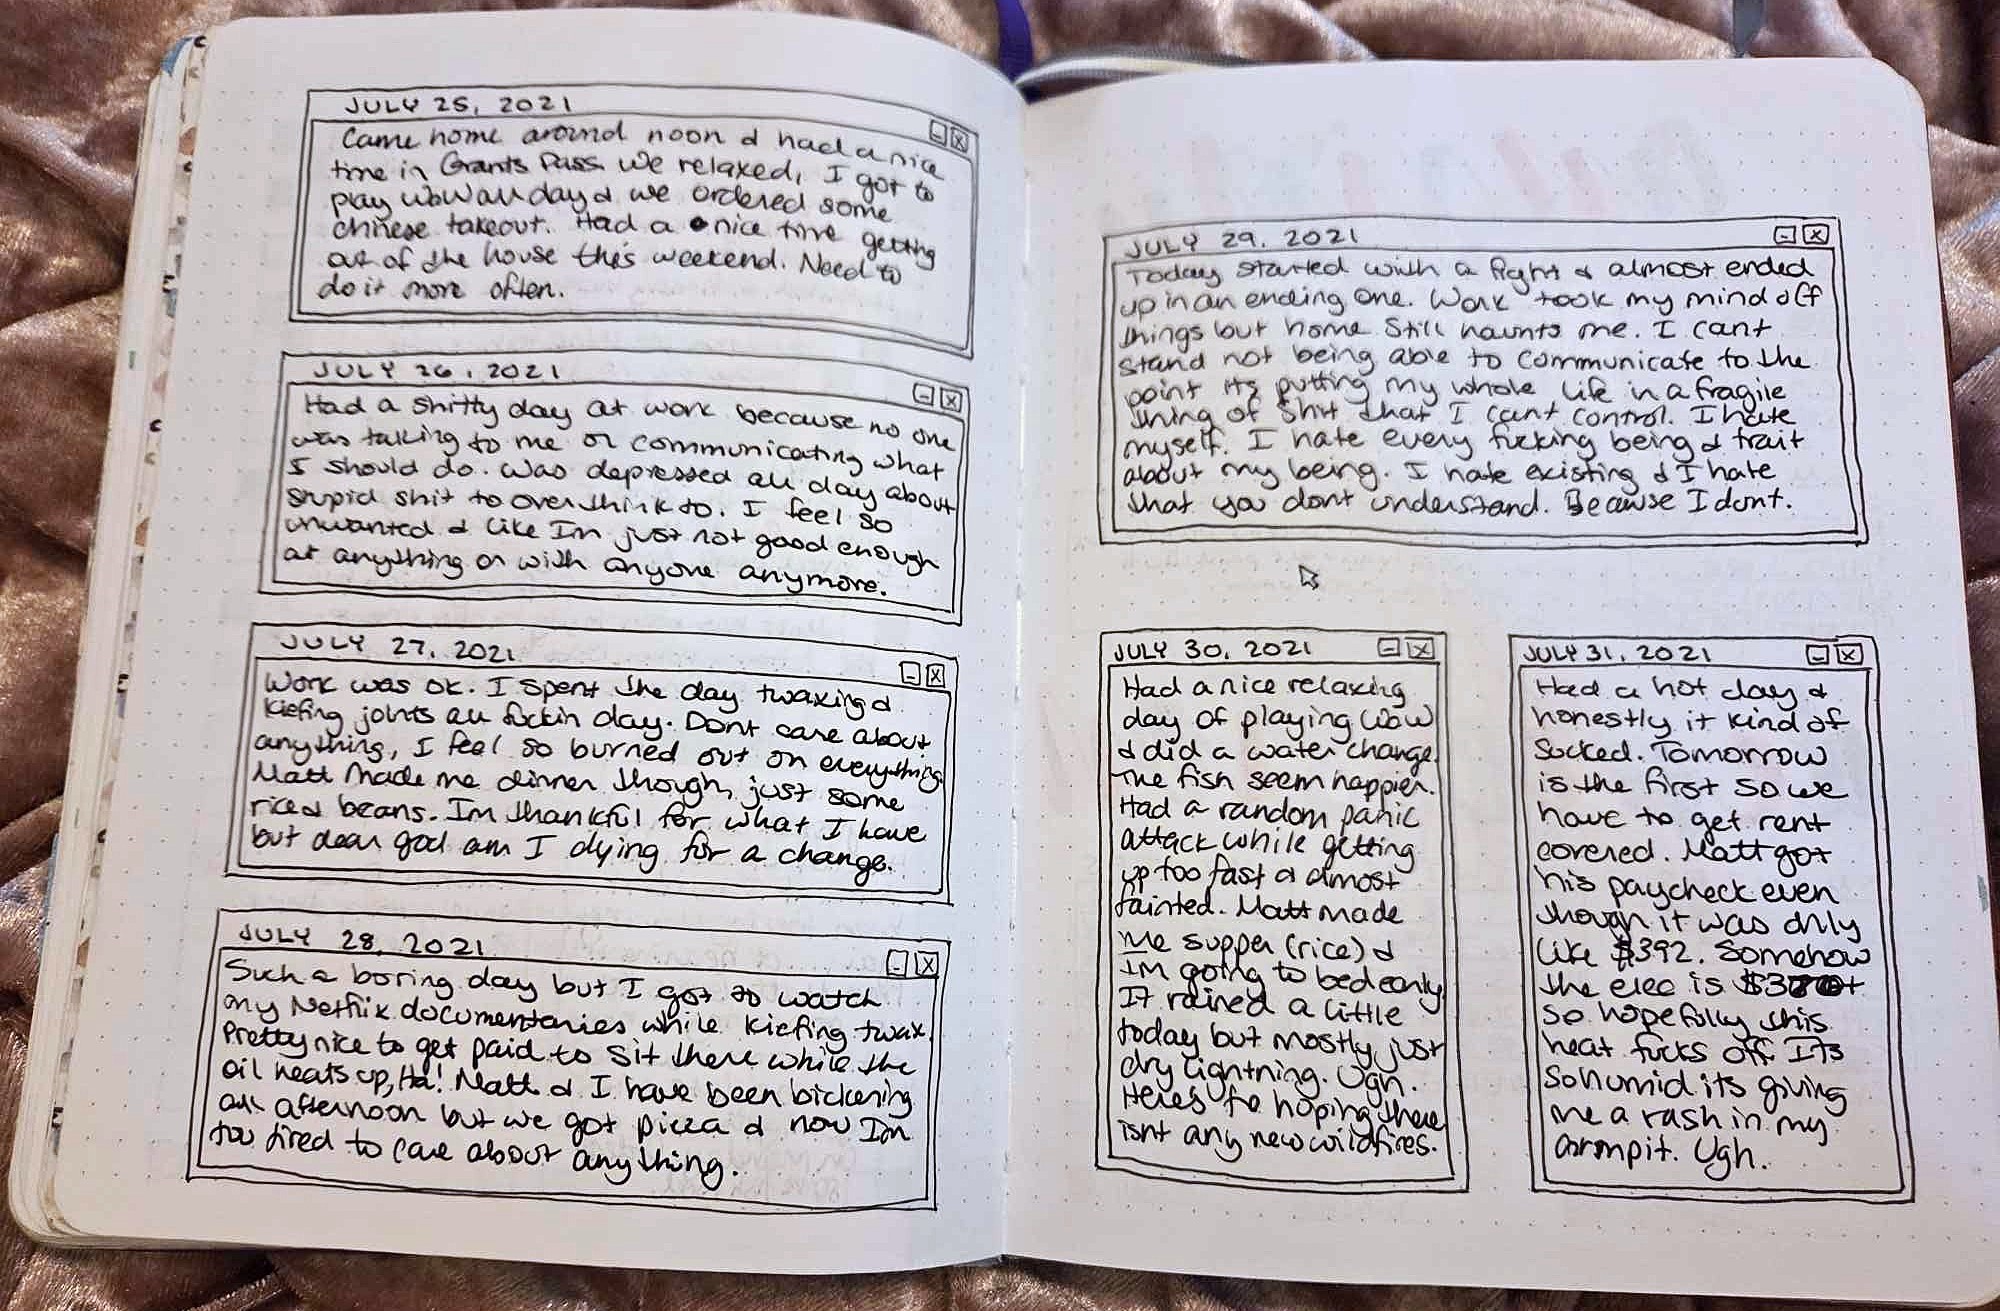 JULY 25, 2021
Came home around noon & had a nice
time in Grants Pass. We relaxed, I got to
play WoW all day & we ordered some
chinese takeout. Had a nice time getting
out of the house this weekend. Need to
do it more often.
JULY 26, 2021
Had a shitty day at work because no one
was talking to me or communicating what
I should do. Was depressed all day about
stupid shit to overthink to. I feel so
unwanted & like Im just not good enough
at anything or with anyone anymore.
JULY 27, 2021
Work was ok. I spent the day twaxing &
kiefing joints all fuckin day. Dont care about
anything, I feel so burned out on everything.
Matt made me dinner though, just some
rice & beans. Im thankful for what I have
but dear god am I dying for a change.
JULY 28, 2021
Such a boring day but I got to watch
my Netflix documentaries while kiefing twax.
Pretty nice to get paid to sit there while the
oil heats up, Ha! Matt & I have been bickering
all afternoon but we got pizza & now Im
too tired to care about anything.
JULY 29, 2021
Today started with a fight & almost ended
up in an ending one. Work took my mind off
things but home still haunts me. I cant
stand not being able to communicate to the
point its putting my whole life in a fragile
thing of shit that I cant control. I hate
myself. I hate every fucking being & trait
about my being. I hate existing & I hate
that you dont understand. Because I dont.
JULY 30, 2021
Had a nice relaxing
day of playing WoW
& did a water change.
The fish seem happier.
Had a random panic
attack while getting
up too fast & almost
fainted. Matt made
me supper (rice) &
Im going to bed early
It rained a little
today but mostly just
dry lightning. Ugh.
Heres to hoping there
isnt any new wildfires.
JULY 31, 2021
Had a hot day &
honestly it kind of
sucked. Tomorrow
is the first so we
have to get rent
covered. Matt got
his paycheck even
though it was only
like $392. Somehow
the elec is
so hopefully this
heat fucks off. Its
so humid its giving
me a rash in my
armpit. Ugh.